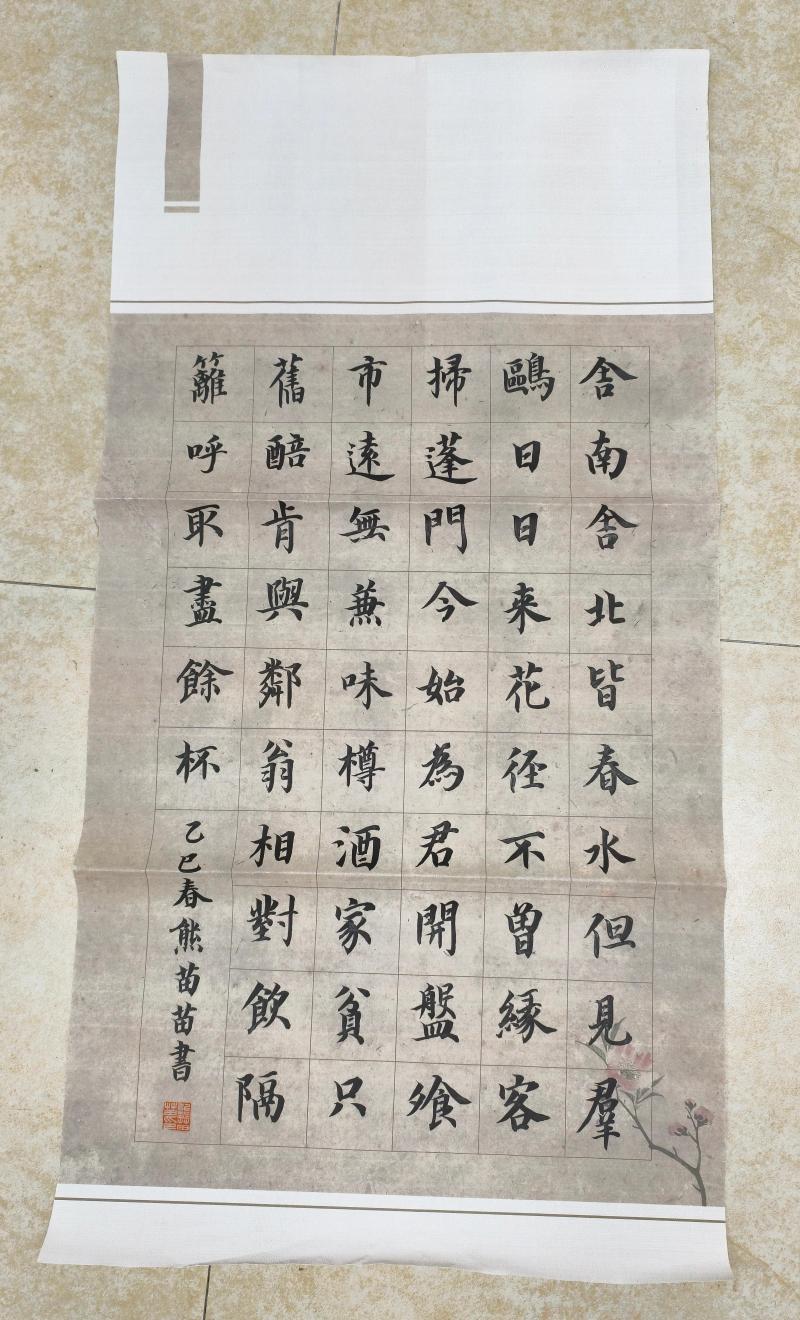 舍南舍北皆春水但見羣
鷗日日来花径不曽縁客
掃蓬門今始為君開盤飧
市遠無蒹味樽酒家貧只
舊醅肯與鄰翁相對飲隔
籬呼取盡餘杯
乙巳春熊苗苗書